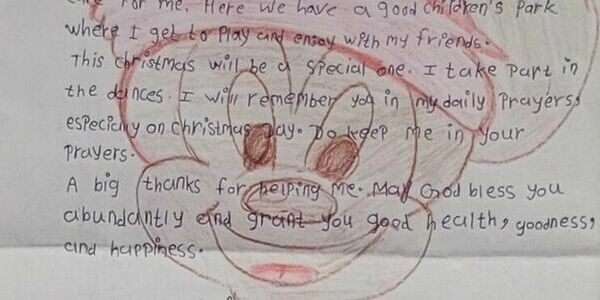 for me. Here we have a good children's park
where I get to play and enjoy with my friends.
This christmas will be a special one. I take part in
the dances. I will remember you in my daily prayers,
especially on christmas day. Do keep me in your
prayers.
A big thanks for helping me. May God bless you
abundantly and grant you good health, goodness,
and happiness.